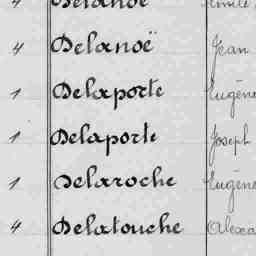 4 Delanoë Émile
4 Delanoë Jean
1 Delaporte Eugène
1 Delaporte Joseph
1 Delaroche Eugène
4 Delatouche